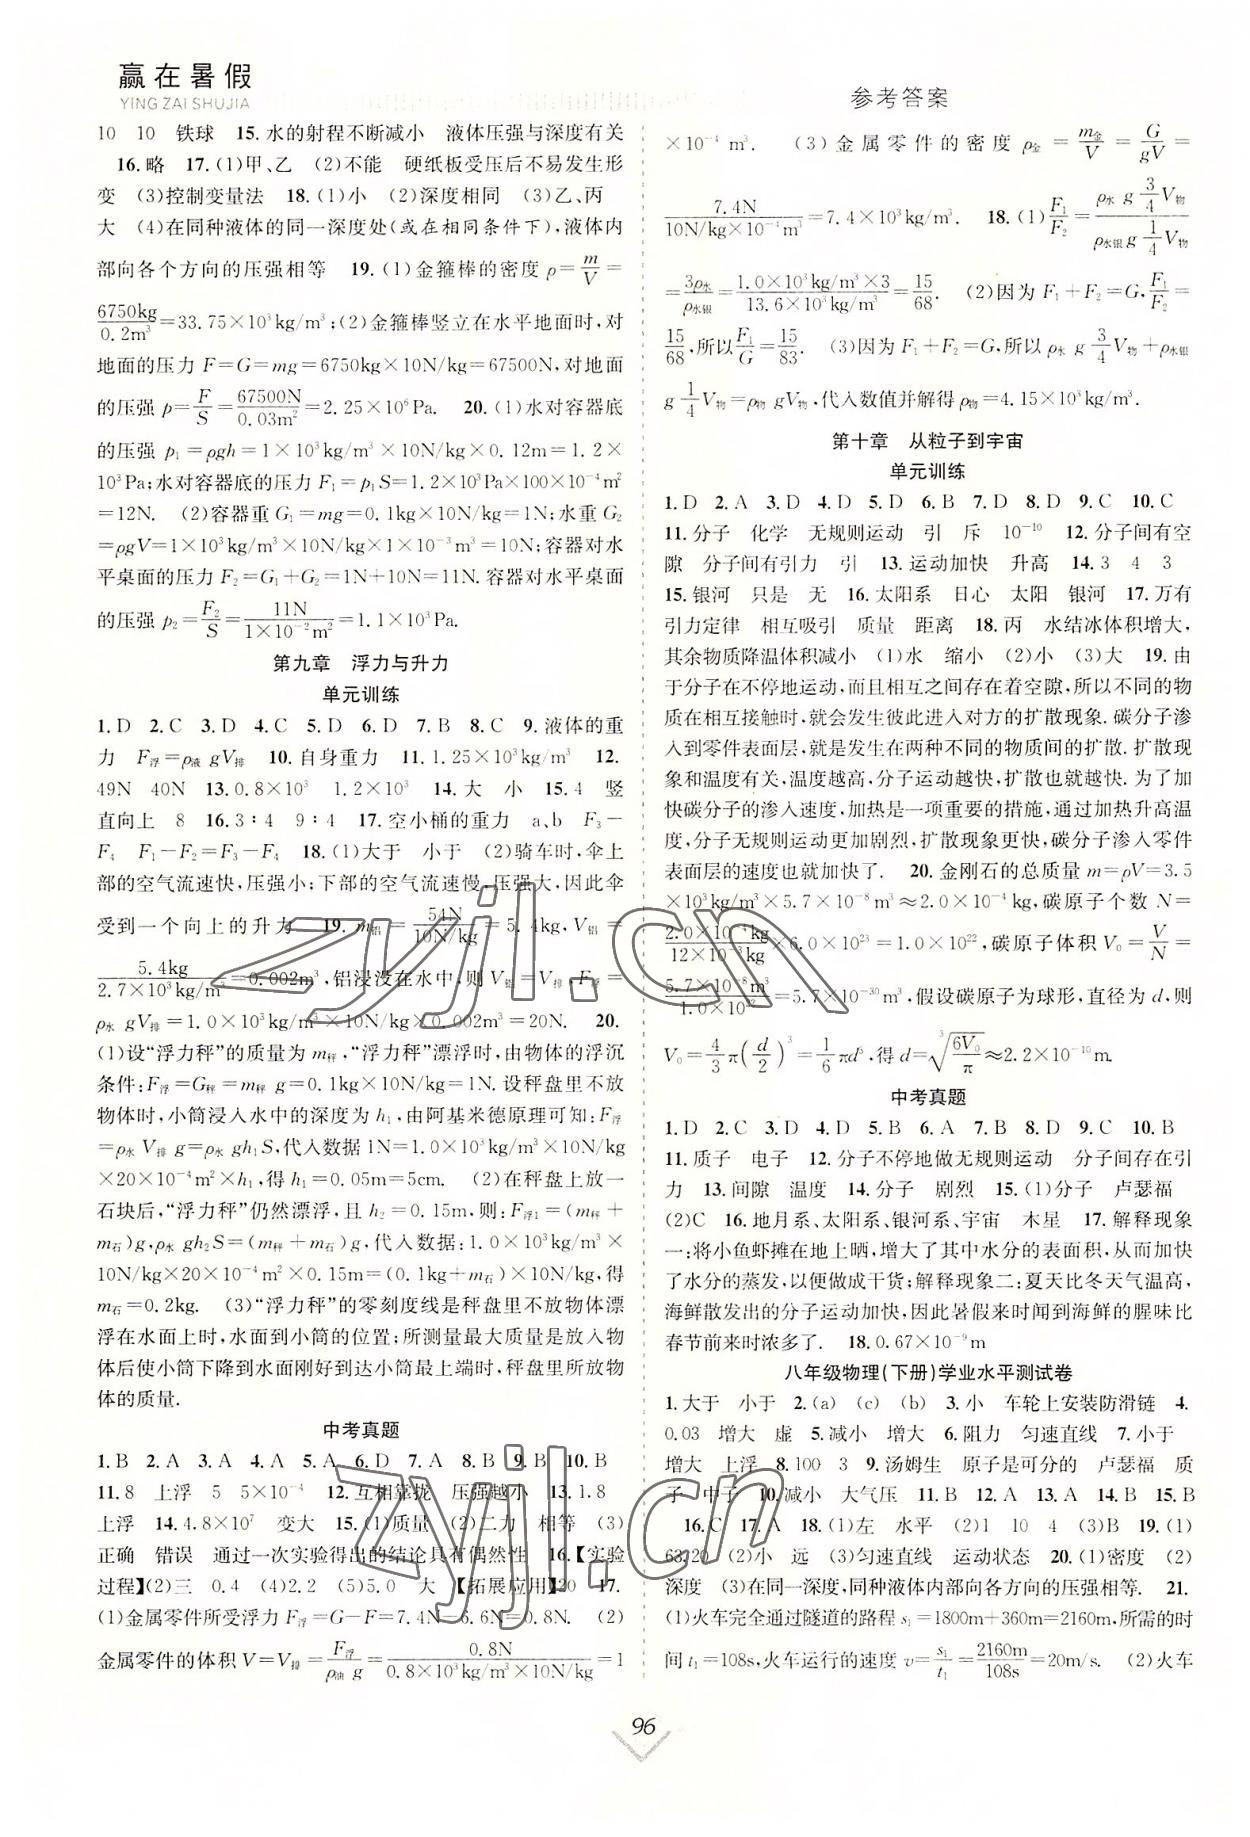 赢在暑假
YING ZAI SHUJIA
参考答案
10 10 铁球 15.水的射程不断减小 液体压强与深度有关
16.略 17.(1)甲、乙 (2)不能 硬纸板受压后不易发生形
变 (3)控制变量法 18.(1)小 (2)深度相同 (3)乙、丙
大 (4)在同种液体的同一深度处(或在相同条件下),液体内
部向各个方向的压强相等 19.(1)金箍棒的密度 ρ=m/V=
6750kg/0.2m³=33.75×10³kg/m³;(2)金箍棒竖立在水平地面时,对
地面的压力 F=G=mg=6750kg×10N/kg=67500N,对地面
的压强 p=F/S=67500N/0.03m²=2.25×10⁶Pa. 20.(1)水对容器底
的压强 p₁=ρgh=1×10³kg/m³×10N/kg×0.12m=1.2×
10³Pa;水对容器底的压力 F₁=p₁S=1.2×10³Pa×100×10⁻⁴m²
=12N. (2)容器重 G₁=mg=0.1kg×10N/kg=1N;水重 G₂
=ρgV=1×10³kg/m³×10N/kg×1×10⁻³m³=10N;容器对水
平桌面的压力 F₂=G₁+G₂=1N+10N=11N.容器对水平桌面
的压强 p₂=F₂/S=11N/1×10⁻²m²=1.1×10³Pa.
第九章 浮力与升力
单元训练
1.D 2.C 3.D 4.C 5.D 6.D 7.B 8.C 9.液体的重
力 F浮=ρ液 gV排 10.自身重力 11.1.25×10³kg/m³ 12.
49N 40N 13.0.8×10³ 1.2×10³ 14.大 小 15.4 竖
直向上 8 16.3∶4 9∶4 17.空小桶的重力 a、b F₃-
F₄ F₁-F₂=F₃-F₄ 18.(1)大于 小于 (2)骑车时,伞上
部的空气流速快,压强小;下部的空气流速慢,压强大,因此伞
受到一个向上的升力 19.m铝=54N/10N/kg=5.4kg,V铝=
5.4kg/2.7×10³kg/m³=0.002m³,铝浸没在水中,则 V铝=V排,F浮=
ρ水 gV排=1.0×10³kg/m³×10N/kg×0.002m³=20N. 20.
(1)设“浮力秤”的质量为 m秤,“浮力秤”漂浮时,由物体的浮沉
条件:F浮=G秤=m秤 g=0.1kg×10N/kg=1N.设秤盘里不放
物体时,小筒浸入水中的深度为 h₁,由阿基米德原理可知:F浮
=ρ水 V排 g=ρ水 gh₁S,代入数据 1N=1.0×10³kg/m³×10N/kg
×20×10⁻⁴m²×h₁,得 h₁=0.05m=5cm. (2)在秤盘上放一
石块后,“浮力秤”仍然漂浮,且 h₂=0.15m,则:F浮1=(m秤+
m石)g,ρ水 gh₂S=(m秤+m石)g,代入数据:1.0×10³kg/m³×
10N/kg×20×10⁻⁴m²×0.15m=(0.1kg+m石)×10N/kg,得
m石=0.2kg. (3)“浮力秤”的零刻度线是秤盘里不放物体漂
浮在水面上时,水面到小筒的位置;所测量最大质量是放入物
体后使小筒下降到水面刚好到达小筒最上端时,秤盘里所放物
体的质量.
中考真题
1.B 2.A 3.A 4.A 5.A 6.D 7.A 8.B 9.B 10.B
11.8 上浮 5 5×10⁻⁴ 12.互相靠拢 压强越小 13.1.8
上浮 14.4.8×10⁷ 变大 15.(1)质量 (2)二力 相等 (3)
正确 错误 通过一次实验得出的结论具有偶然性 16.【实验
过程】(2)三 0.4 (4)2.2 (5)5.0 大 【拓展应用】20 17.
(1)金属零件所受浮力 F浮=G-F=7.4N-6.6N=0.8N. (2)
金属零件的体积 V=V排=F浮/ρ油 g=0.8N/0.8×10³kg/m³×10N/kg=1
×10⁻⁴m³. (3)金属零件的密度 ρ金=m金/V=G/gV=
7.4N/10N/kg×10⁻⁴m³=7.4×10³kg/m³. 18.(1)F₁/F₂=ρ水 g 3/4 V物/ρ水银 g 1/4 V物
=3ρ水/ρ水银=1.0×10³kg/m³×3/13.6×10³kg/m³=15/68. (2)因为 F₁+F₂=G,F₁/F₂=
15/68,所以F₁/G=15/83. (3)因为 F₁+F₂=G,所以 ρ水 g 3/4 V物+ρ水银
g 1/4 V物=ρ物 gV物,代入数值并解得 ρ物=4.15×10³kg/m³.
第十章 从粒子到宇宙
单元训练
1.D 2.A 3.D 4.D 5.D 6.B 7.D 8.D 9.C 10.C
11.分子 化学 无规则运动 引 斥 10⁻¹⁰ 12.分子间有空
隙 分子间有引力 引 13.运动加快 升高 14.3 4 3
15.银河 只是 无 16.太阳系 日心 太阳 银河 17.万有
引力定律 相互吸引 质量 距离 18.丙 水结冰体积增大,
其余物质降温体积减小 (1)水 缩小 (2)小 (3)大 19.由
于分子在不停地运动,而且相互之间存在着空隙,所以不同的物
质在相互接触时,就会发生彼此进入对方的扩散现象.碳分子渗
入到零件表面层,就是发生在两种不同的物质间的扩散.扩散现
象和温度有关,温度越高,分子运动越快,扩散也就越快.为了加
快碳分子的渗入速度,加热是一项重要的措施,通过加热升高温
度,分子无规则运动更加剧烈,扩散现象更快,碳分子渗入零件
表面层的速度也就加快了. 20.金刚石的总质量 m=ρV=3.5
×10³kg/m³×5.7×10⁻⁸m³≈2.0×10⁻⁴kg,碳原子个数 N=
2.0×10⁻⁴kg/12×10⁻³kg×6.0×10²³=1.0×10²²,碳原子体积 V₀=V/N=
5.7×10⁻⁸m³/1.0×10²²=5.7×10⁻³⁰m³,假设碳原子为球形,直径为 d,则
V₀=4/3π(d/2)³=1/6πd³,得 d=³√(6V₀/π)≈2.2×10⁻¹⁰m.
中考真题
1.D 2.C 3.D 4.D 5.B 6.A 7.B 8.D 9.C 10.B
11.质子 电子 12.分子不停地做无规则运动 分子间存在引
力 13.间隙 温度 14.分子 剧烈 15.(1)分子 卢瑟福
(2)C 16.地月系、太阳系、银河系、宇宙 木星 17.解释现象
一:将小鱼虾摊在地上晒,增大了其中水分的表面积,从而加快
了水分的蒸发,以便做成干货;解释现象二:夏天比冬天气温高,
海鲜散发出的分子运动加快,因此暑假来时闻到海鲜的腥味比
春节前来时浓多了. 18.0.67×10⁻⁹m
八年级物理(下册)学业水平测试卷
1.大于 小于 2.(a) (c) (b) 3.小 车轮上安装防滑链 4.
0.03 增大 虚 5.减小 增大 6.阻力 匀速直线 7.小于
增大 上浮 8.100 3 9.汤姆生 原子是可分的 卢瑟福 质
子 中子 10.减小 大气压 11.B 12.A 13.A 14.B 15.B
16.C 17.A 18.(1)左 水平 (2)1 10 4 (3)B 19.(1)
63/20 (2)小 远 (3)匀速直线 运动状态 20.(1)密度 (2)
深度 (3)在同一深度,同种液体内部向各方向的压强相等. 21.
(1)火车完全通过隧道的路程 s₁=1800m+360m=2160m,所需的时
间 t₁=108s,火车运行的速度 v=s₁/t₁=2160m/108s=20m/s. (2)火车
96
zyjl.cn
zyjl.cn